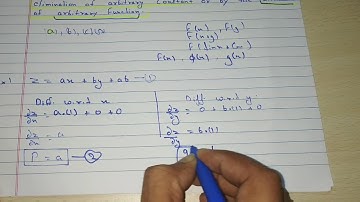 Elimination of arbitrary constant or by the
of arbitrary function.
(a), (b), (c)
f(x), f(y)
f(x+y)
f(sinx+Cos
f(x). φ(x). g(x)
z = ax + by + ab —①
Diff. w.r.to x
∂z/∂x = a.(1) + 0 + 0
∂z/∂x = a
P = a —②
Diff. w.r.to y.
∂z/∂y = 0 + b.(1) + 0
∂z/∂y = b.(1)
q